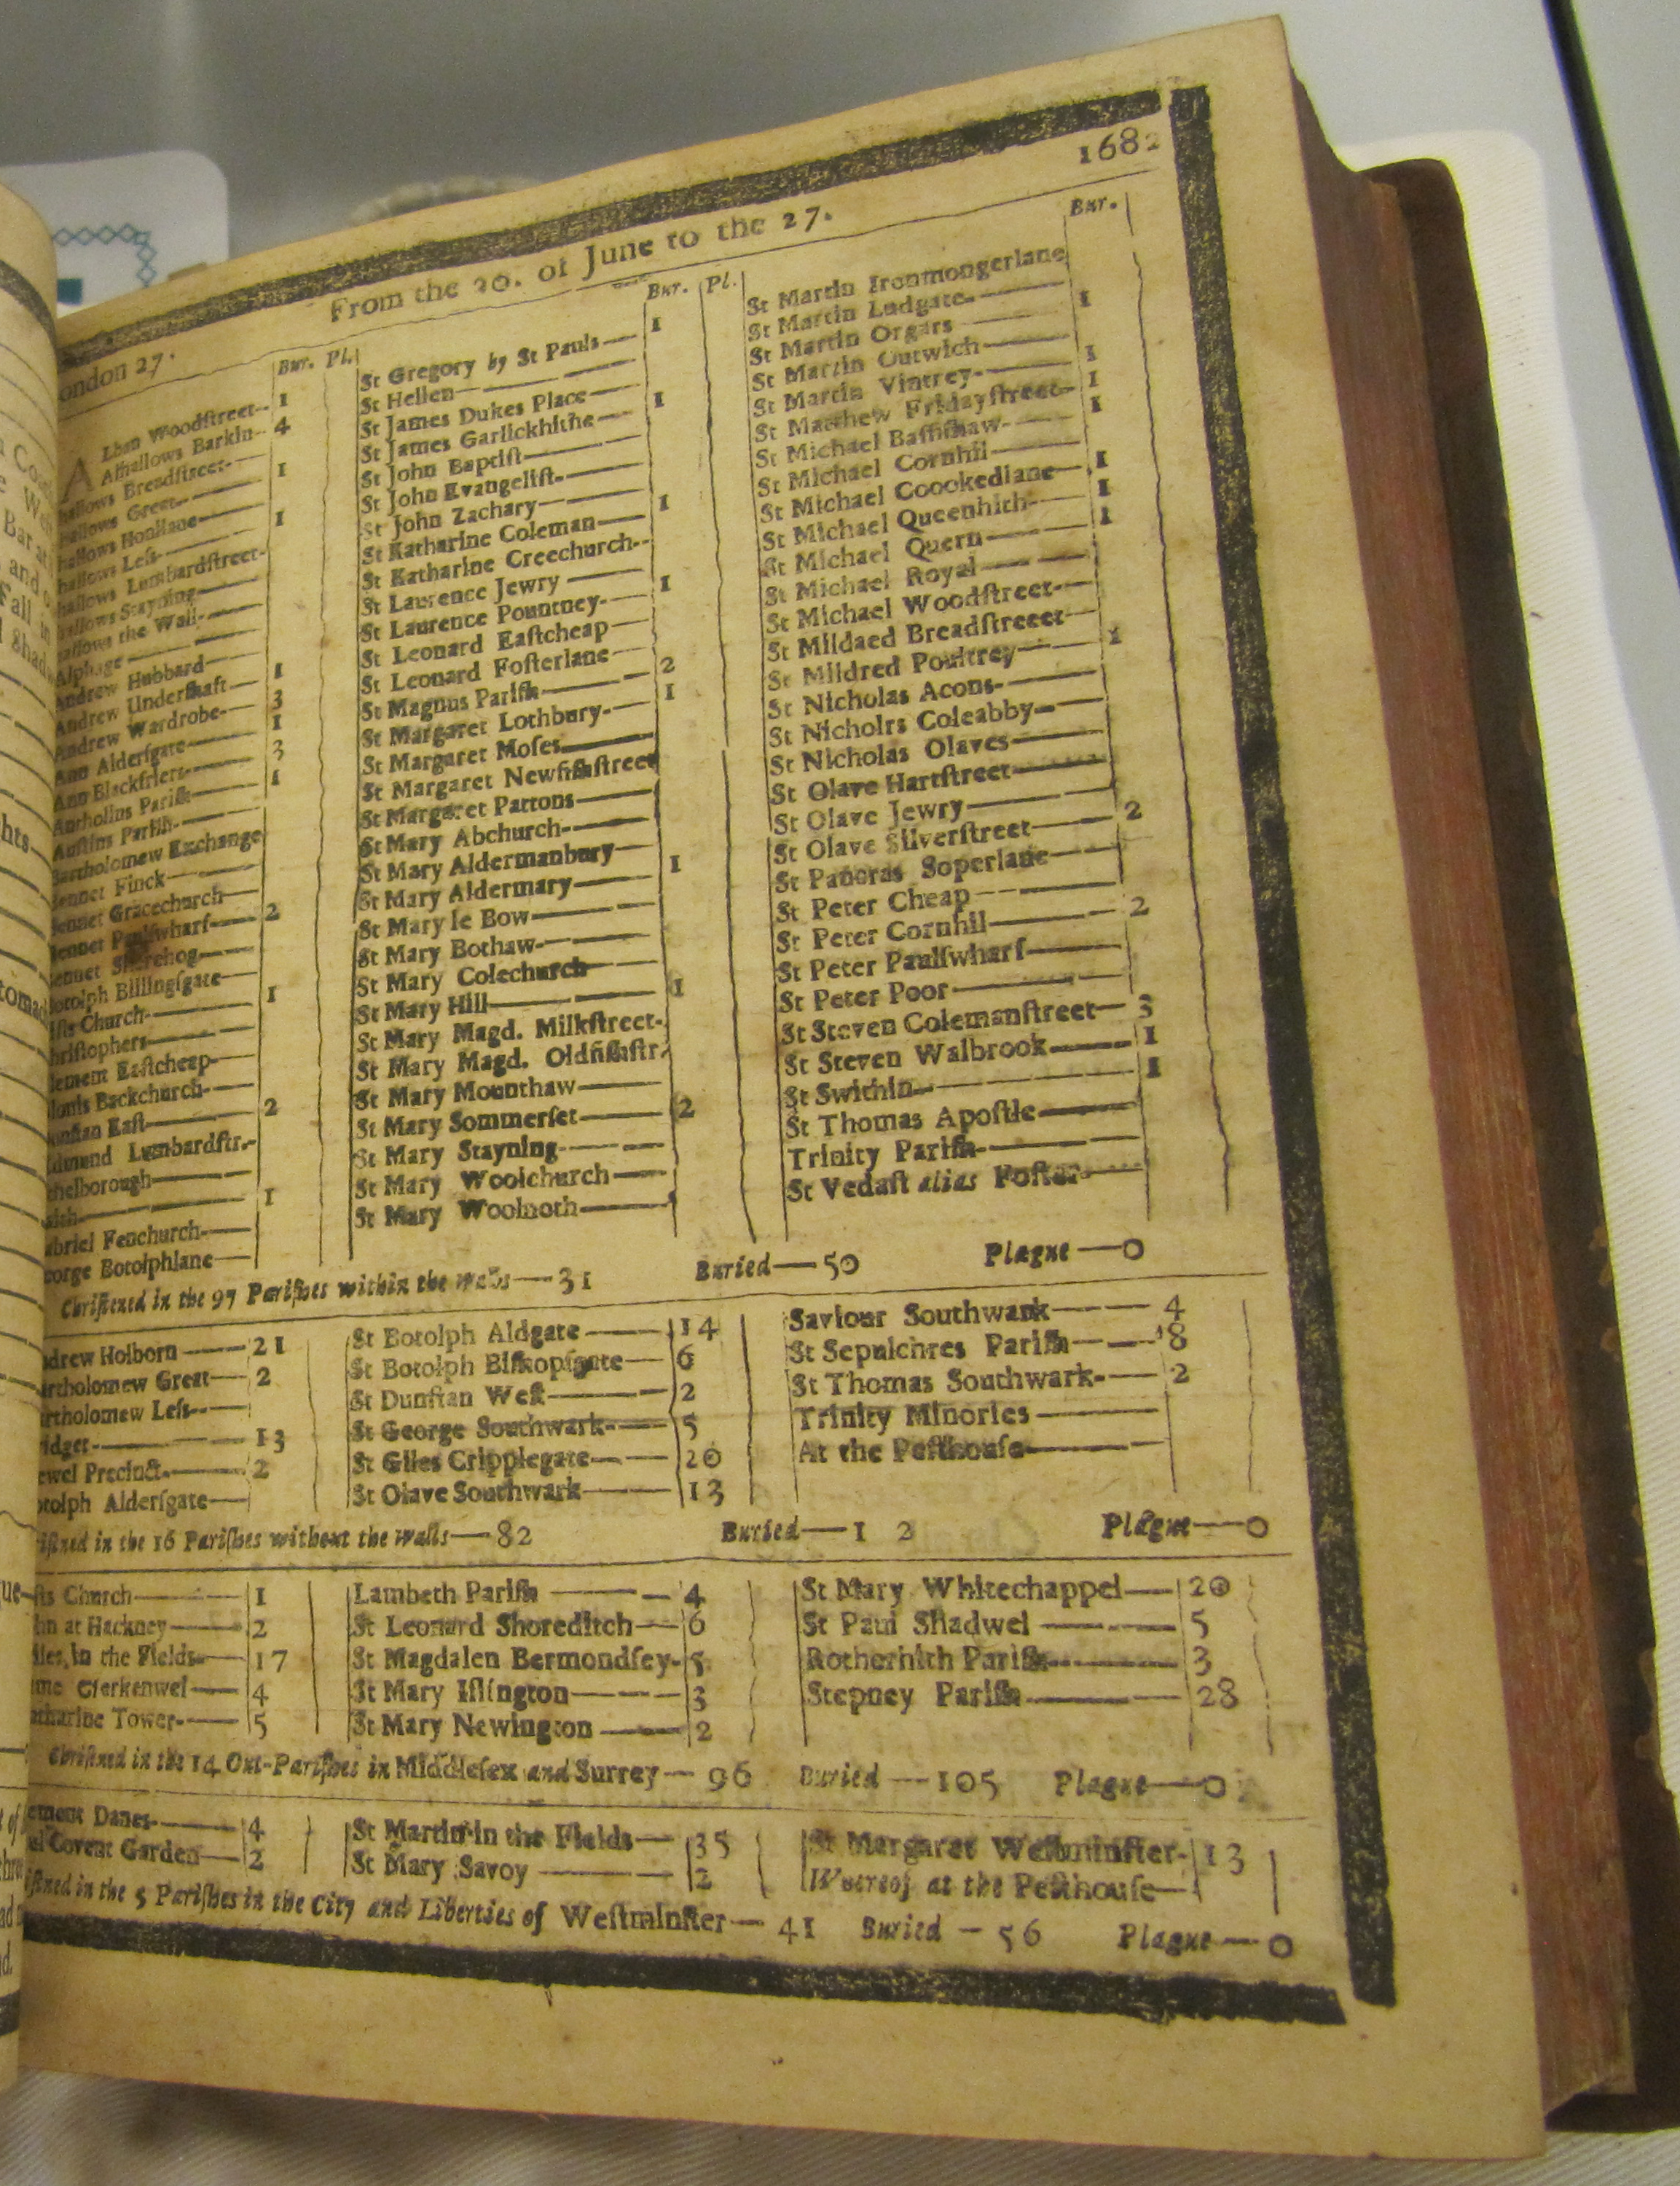 1682
ondon 27. From the 20. of June to the 27.
Bur. Pl.
Lban Woodſtreet- 1
A Alhallows Barkin- 4
hallows Breadſtreet- 1
hallows Great
hallows Honilane 1
hallows Leſs
hallows Lumbardſtreet
hallows Stayning
hallows the Wall
Alphage
Andrew Hubbard 1
Andrew Underſhaft 3
Andrew Wardrobe 1
Ann Alderſgate 3
Ann Blackfriers 1
Antholins Pariſh
Auſtins Pariſh
Bartholomew Exchange
ennet Finck
ennet Gracechurch
ennet Paulſwharf 2
ennet Sherehog
otolph Billingſgate
iſts Church 1
hriſtophers
lement Eaſtcheap
ionis Backchurch
unſtan Eaſt 2
dmund Lumbardſtr.
thelborough
aith 1
abriel Fenchurch
eorge Botolphlane
Bur. Pl.
St Gregory by St Pauls 1
St Hellen
St James Dukes Place
St James Garlickhithe 1
St John Baptiſt
St John Evangeliſt
St John Zachary
St Katharine Coleman 1
St Katharine Creechurch
St Laurence Jewry
St Laurence Pountney 1
St Leonard Eaſtcheap
St Leonard Foſterlane
St Magnus Pariſh 2
St Margaret Lothbury 1
St Margaret Moſes
St Margaret Newfiſhſtreet
St Margaret Pattons
St Mary Abchurch
St Mary Aldermanbury
St Mary Aldermary 1
St Mary le Bow
St Mary Bothaw
St Mary Colechurch
St Mary Hill 1
St Mary Magd. Milkſtreet
St Mary Magd. Oldfiſhſtr.
St Mary Mounthaw
St Mary Sommerſet 2
St Mary Stayning
St Mary Woolchurch
St Mary Woolnoth
Bur.
St Martin Ironmongerlane
St Martin Ludgate 1
St Martin Orgars
St Martin Outwich 1
St Martin Vintrey 1
St Matthew Fridayſtreet 1
St Michael Baſſiſhaw
St Michael Cornhil 1
St Michael Coookedlane 1
St Michael Queenhith 1
St Michael Quern
St Michael Royal
St Michael Woodſtreet
St Mildaed Breadſtreeet
St Mildred Poultrey 1
St Nicholas Acons
St Nicholrs Coleabby
St Nicholas Olaves
St Olave Hartſtreet
St Olave Jewry
St Olave Silverſtreet 2
St Pancras Soperlane
St Peter Cheap
St Peter Cornhil 2
St Peter Paulſwharf
St Peter Poor
St Steven Colemanſtreet 3
St Steven Walbrook 1
St Swithin 1
St Thomas Apoſtle
Trinity Pariſh
St Vedaſt alias Foſter
Chriſtened in the 97 Pariſhes within the walls—31 Buried—50 Plague—0
drew Holborn 21
artholomew Great 2
artholomew Leſs
ridget 13
ewel Precinct 2
otolph Alderſgate
St Botolph Aldgate 14
St Botolph Biſhopſgate 6
St Dunſtan Weſt 2
St George Southwark 5
St Giles Cripplegate 20
St Olave Southwark 13
Saviour Southwark 4
St Sepulchres Pariſh 8
St Thomas Southwark 2
Trinity Minories
At the Peſthouſe
iſtned in the 16 Pariſhes without the walls—82 Buried—1 2 Plague—0
ſts Church 1
hn at Hackney 2
iles in the Fields 17
me Clerkenwel 4
atharine Tower 5
Lambeth Pariſh 4
St Leonard Shoreditch 6
St Magdalen Bermondſey 5
St Mary Iſlington 3
St Mary Newington 2
St Mary Whitechappel 20
St Paul Shadwel 5
Rotherhith Pariſh 3
Stepney Pariſh 28
Chriſtned in the 14 Out-Pariſhes in Middleſex and Surrey—96 Buried—105 Plague—0
ement Danes 4
ul Covent Garden 2
St Martin in the Fields 35
St Mary Savoy 2
St Margaret Weſtminſter 13
Whereof at the Peſthouſe
iſtned in the 5 Pariſhes in the City and Liberties of Weſtminſter—41 Buried—56 Plague—0